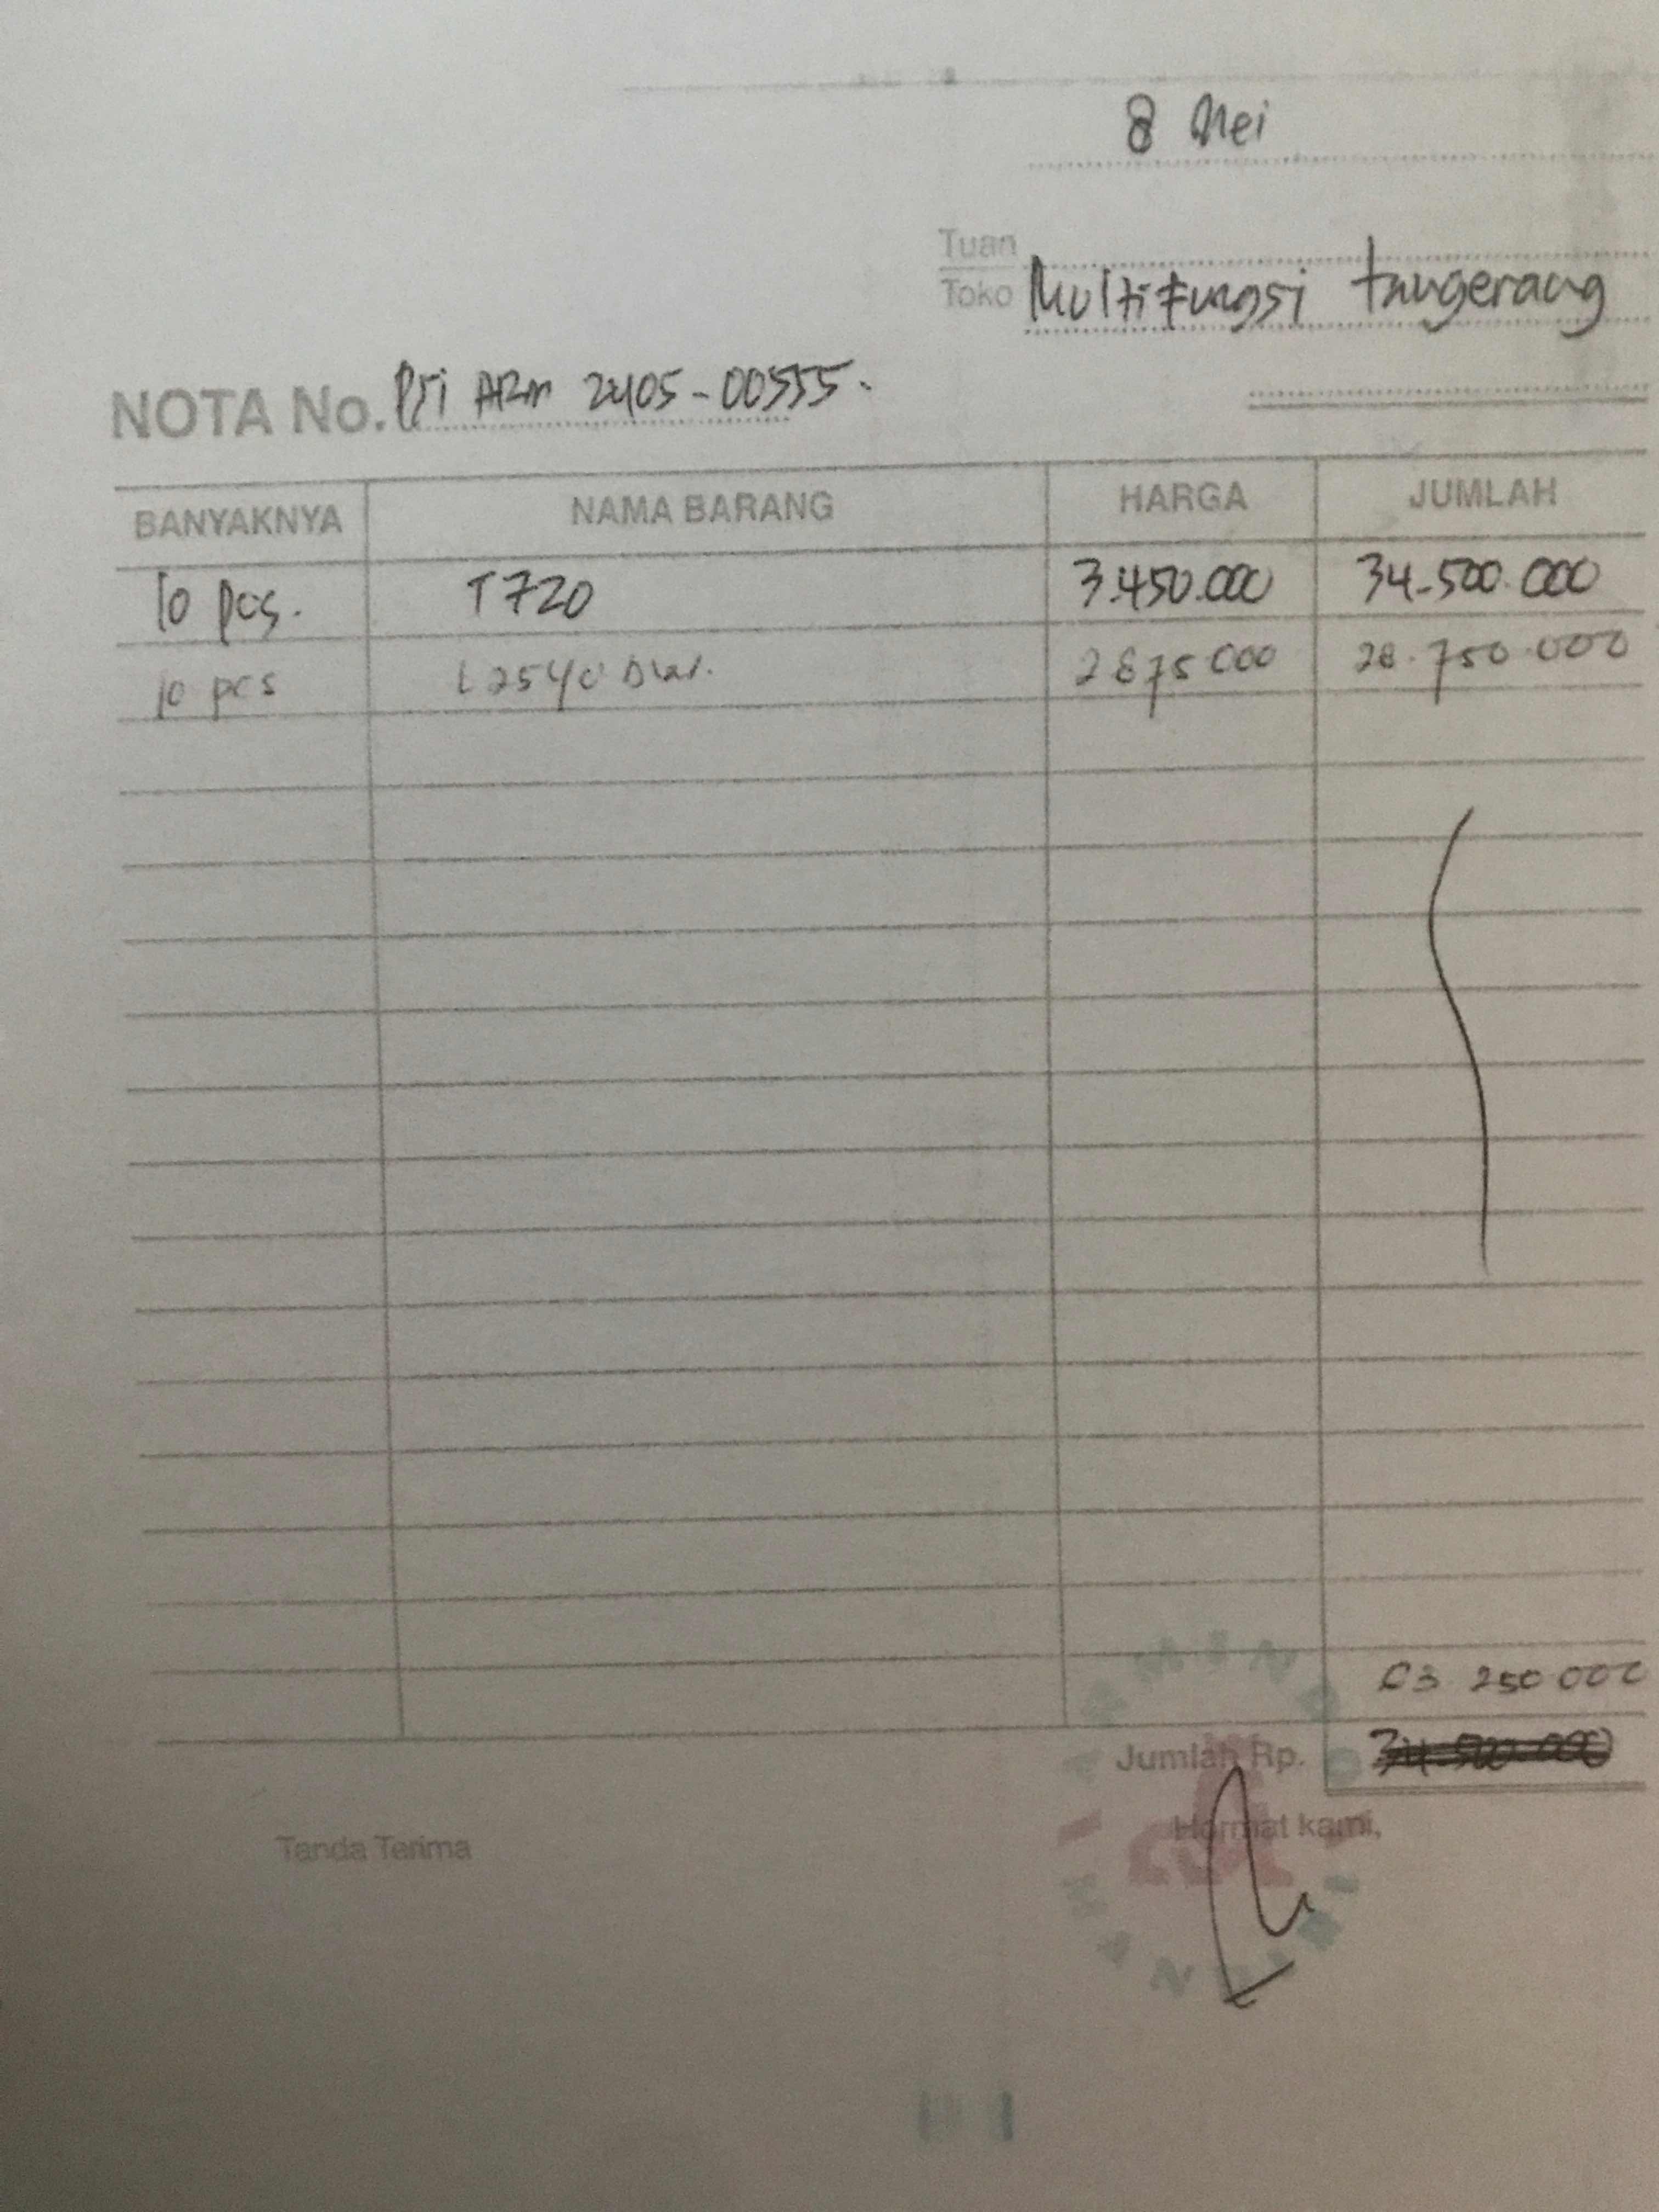 8 Mei
Tuan
Toko Multifungsi tangerang
NOTA No. Pri ARM 2405-00555.
BANYAKNYA NAMA BARANG HARGA JUMLAH
10 pcs. T720 3.450.000 34.500.000
10 pcs L2540 DW. 2875000 28.750.000
63 250 000
Jumlah Rp. 34.500.000
Tanda Terima Hormat kami,